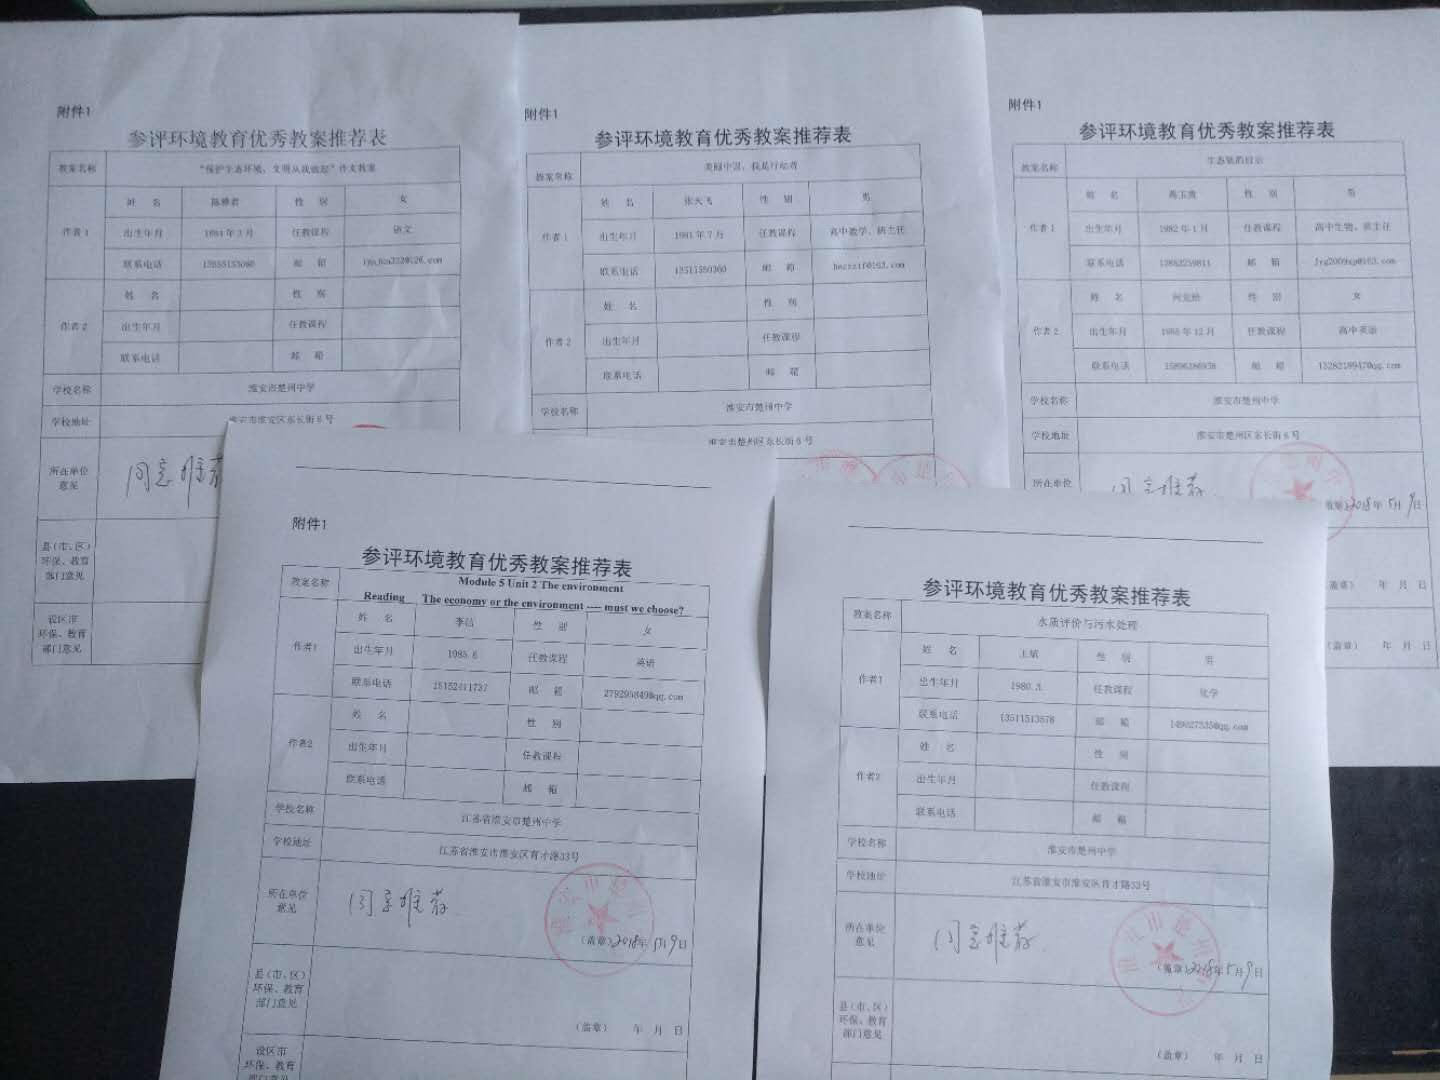 附件1
参评环境教育优秀教案推荐表
教案名称 “保护生态环境，文明从我做起”作文教案
作者1 姓 名 性 别 女
出生年月 1984年3月 任教课程 语文
联系电话 邮 箱
作者2 姓 名 性 别
出生年月 任教课程
联系电话 邮 箱
学校名称 淮安市楚州中学
学校地址 淮安市淮安区东长街6号
所在单位
意见 同意推荐
县（市、区）
环保、教育
部门意见
设区市
环保、教育
部门意见
附件1
参评环境教育优秀教案推荐表
教案名称 美丽中国，我是行动者
作者1 姓 名 张天飞 性 别 男
出生年月 1981年7月 任教课程 高中数学、班主任
联系电话 邮 箱
作者2 姓 名 性 别
出生年月 任教课程
联系电话 邮 箱
学校名称 淮安市楚州中学
淮安市楚州区东长街6号
附件1
参评环境教育优秀教案推荐表
教案名称 生态瓶的启示
作者1 姓 名 性 别 男
出生年月 1982年1月 任教课程 高中生物、班主任
联系电话 邮 箱
作者2 姓 名 性 别 女
出生年月 1988年12月 任教课程 高中英语
联系电话 邮 箱
学校名称 淮安市楚州中学
学校地址 淮安市楚州区东长街6号
所在单位 同意推荐 2018年5月9日
（盖章） 年 月 日
（盖章） 年 月 日
附件1
参评环境教育优秀教案推荐表
教案名称 Module 5 Unit 2 The environment
Reading The economy or the environment ---- must we choose?
作者1 姓 名 李洁 性 别 女
出生年月 1985.6 任教课程 英语
联系电话 邮 箱 279295849@qq.com
作者2 姓 名 性 别
出生年月 任教课程
联系电话 邮 箱
学校名称 江苏省淮安市楚州中学
学校地址 江苏省淮安市淮安区育才路33号
所在单位
意见 同意推荐
（盖章）2018年5月9日
县（市、区）
环保、教育
部门意见
（盖章） 年 月 日
设区市
环保、教育
部门意见
附件1
参评环境教育优秀教案推荐表
教案名称 水质评价与污水处理
作者1 姓 名 性 别 男
出生年月 1980.3. 任教课程 化学
联系电话 13511513578 邮 箱
作者2 姓 名 性 别
出生年月 任教课程
联系电话 邮 箱
学校名称 淮安市楚州中学
学校地址 江苏省淮安市淮安区育才路33号
所在单位
意见 同意推荐
（盖章）2018年5月9日
县（市、区）
环保、教育
部门意见
（盖章） 年 月 日